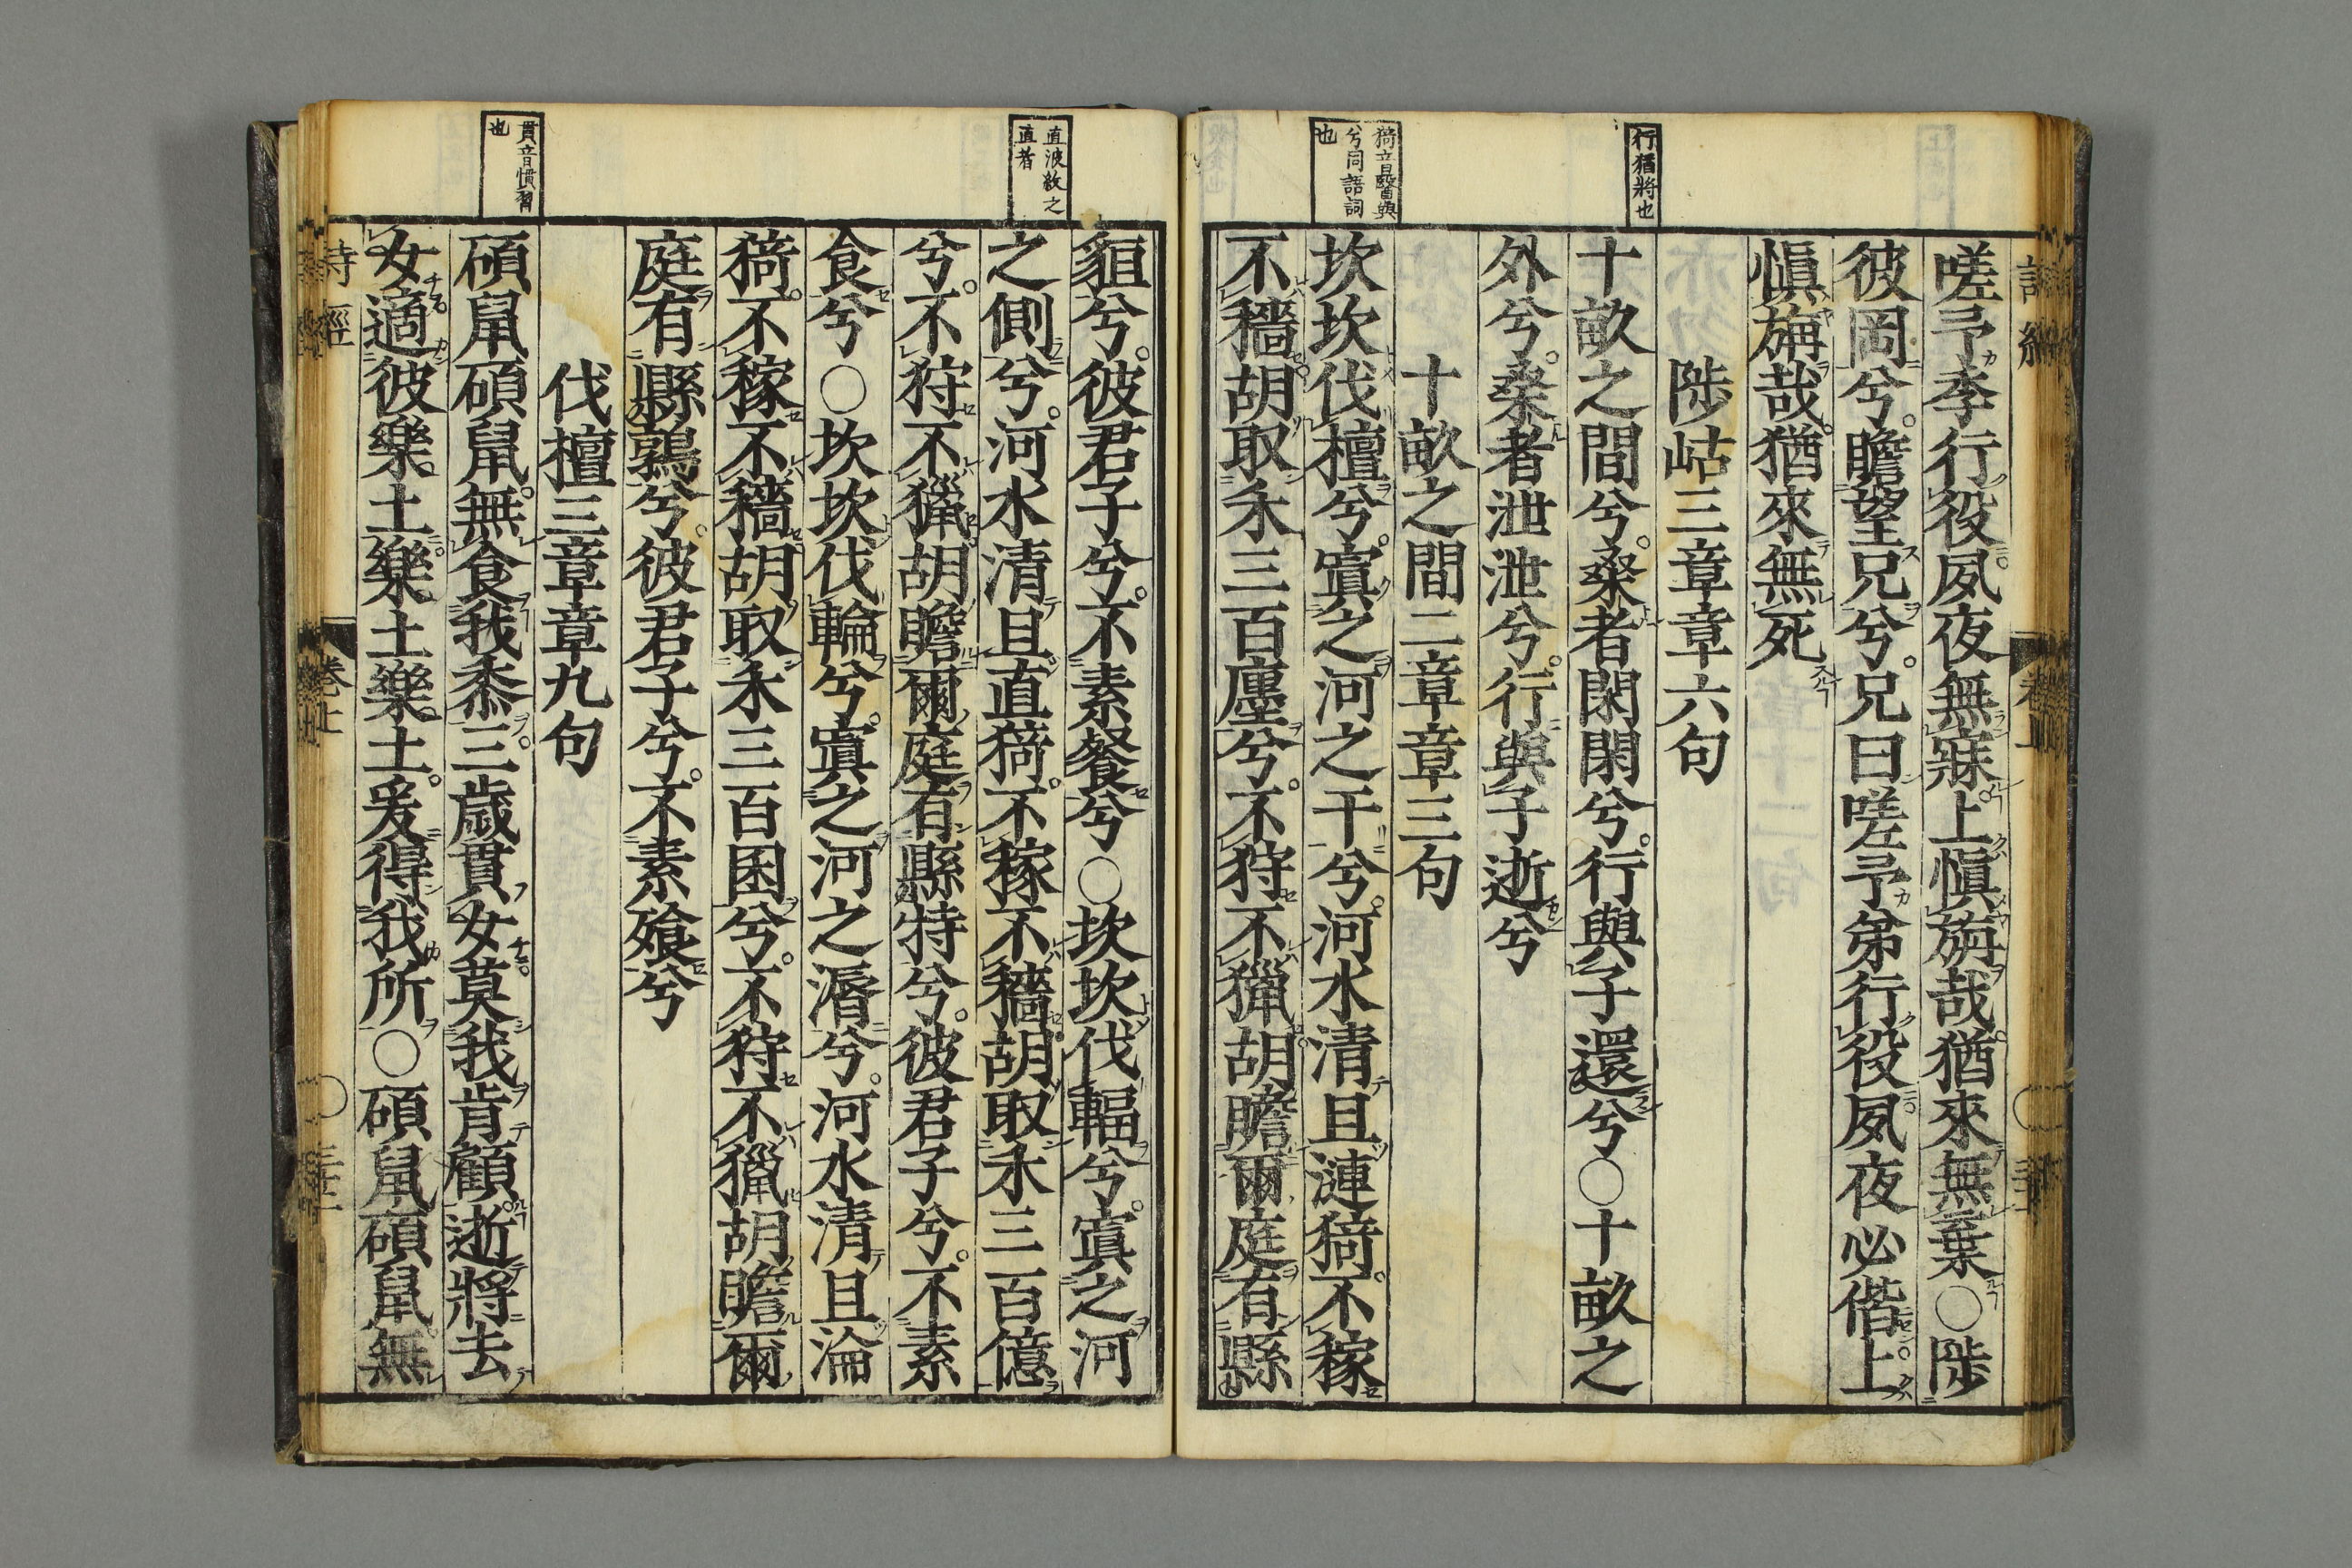 行猶將也
猗音醫與
兮同語詞
也
嗟予季行役夙夜無寐上愼旃哉猶來無棄○陟
彼岡兮瞻望兄兮兄曰嗟予弟行役夙夜必偕上
愼旃哉猶來無死
陟岵三章章六句
十畝之間兮桑者閑閑兮行與子還兮○十畝之
外兮桑者泄泄兮行與子逝兮
十畝之間二章章三句
坎坎伐檀兮寘之河之干兮河水清且漣猗不稼
不穡胡取禾三百廛兮不狩不獵胡瞻爾庭有縣
直波紋之
直者
貫音慣習
也
貆兮彼君子兮不素餐兮○坎坎伐輻兮寘之河
之側兮河水清且直猗不稼不穡胡取禾三百億
兮不狩不獵胡瞻爾庭有縣特兮彼君子兮不素
食兮○坎坎伐輪兮寘之河之漘兮河水清且淪
猗不稼不穡胡取禾三百囷兮不狩不獵胡瞻爾
庭有縣鶉兮彼君子兮不素飧兮
伐檀三章章九句
碩鼠碩鼠無食我黍三歲貫女莫我肯顧逝將去
女適彼樂土樂土樂土爰得我所○碩鼠碩鼠無
詩經 卷上